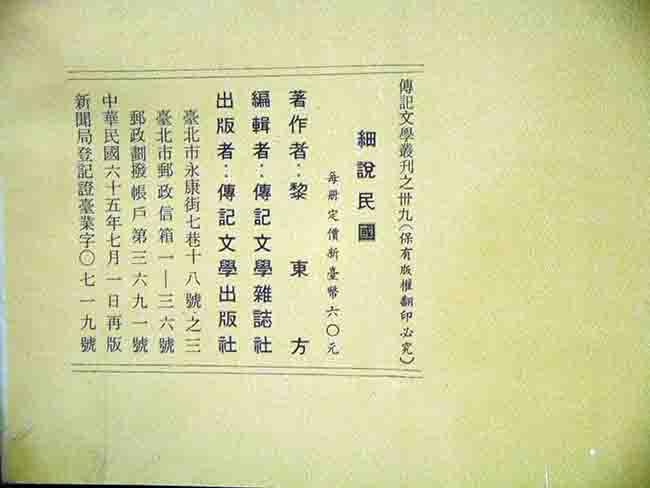 傳記文學叢刊之卅九(保有版權翻印必究)
細說民國
每册定價新臺幣六〇元
著作者：黎東方
編輯者：傳記文學雜誌社
出版者：傳記文學出版社
臺北市永康街七巷十八號之三
臺北市郵政信箱一—三六號
郵政劃撥帳戶第三六九一號
中華民國六十五年七月一日再版
新聞局登記證臺業字〇七一九號